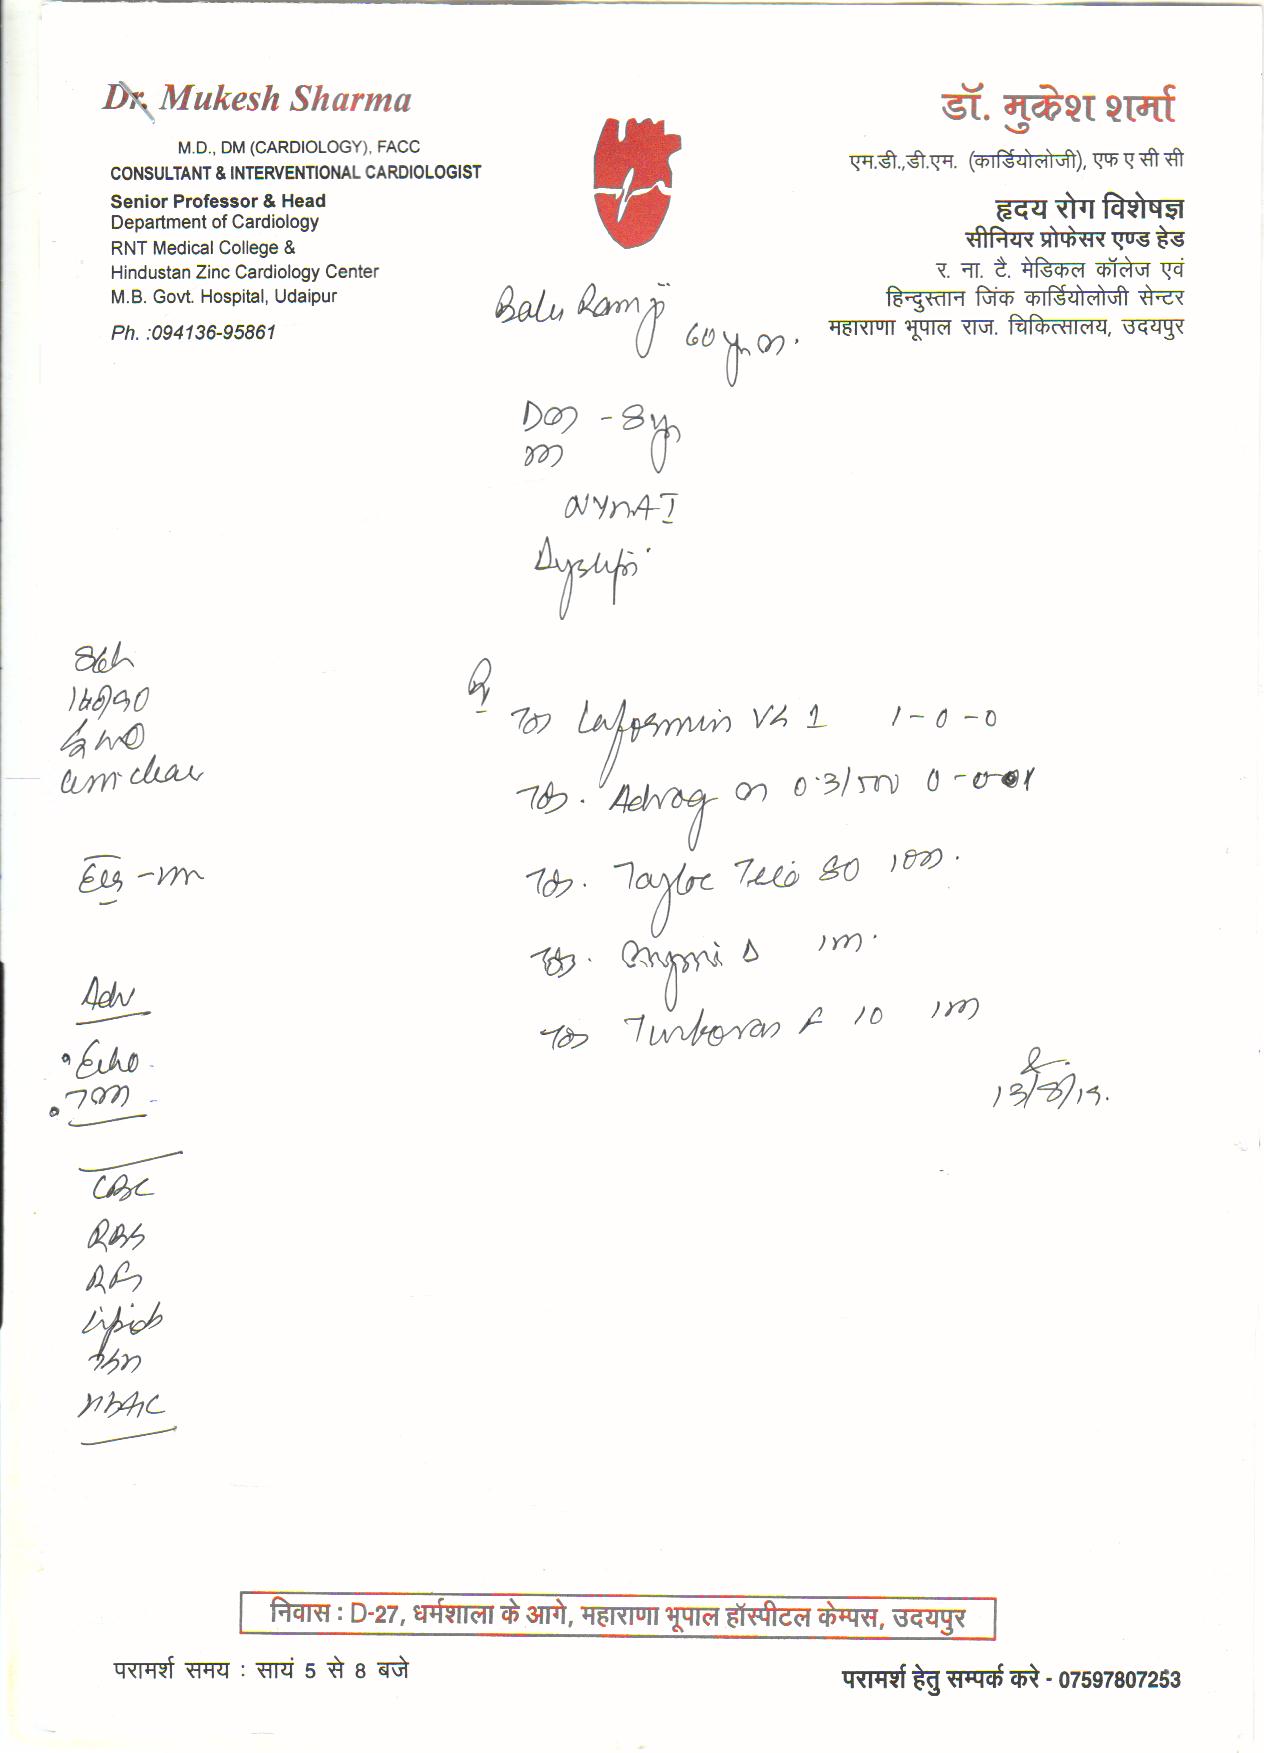 Dr. Mukesh Sharma
M.D., DM (CARDIOLOGY), FACC
CONSULTANT & INTERVENTIONAL CARDIOLOGIST
Senior Professor & Head
Department of Cardiology
RNT Medical College &
Hindustan Zinc Cardiology Center
M.B. Govt. Hospital, Udaipur
Ph. :094136-95861
डॉ. मुकेश शर्मा
एम.डी.,डी.एम. (कार्डियोलोजी), एफ ए सी सी
हृदय रोग विशेषज्ञ
सीनियर प्रोफेसर एण्ड हेड
र. ना. टै. मेडिकल कॉलेज एवं
हिन्दुस्तान जिंक कार्डियोलोजी सेन्टर
महाराणा भूपाल राज. चिकित्सालय, उदयपुर
Balu Ram ji
60 yr m.
DM - 8 yr
NYHA I
Dyslipi
86/m
/90
chest clear
ECG -
Adv
Echo
TMT
CBC
RBS
RFT
Lipids
TSH
HbA1c
Rx
Tab 1 1-0-0
Tab. 0.3/500 0-0-1
Tab. Telo 80
Tab. D
Tab Turbovas F 10
13/8/19.
निवास : D-27, धर्मशाला के आगे, महाराणा भूपाल हॉस्पीटल केम्पस, उदयपुर
परामर्श समय : सायं 5 से 8 बजे
परामर्श हेतु सम्पर्क करे - 07597807253